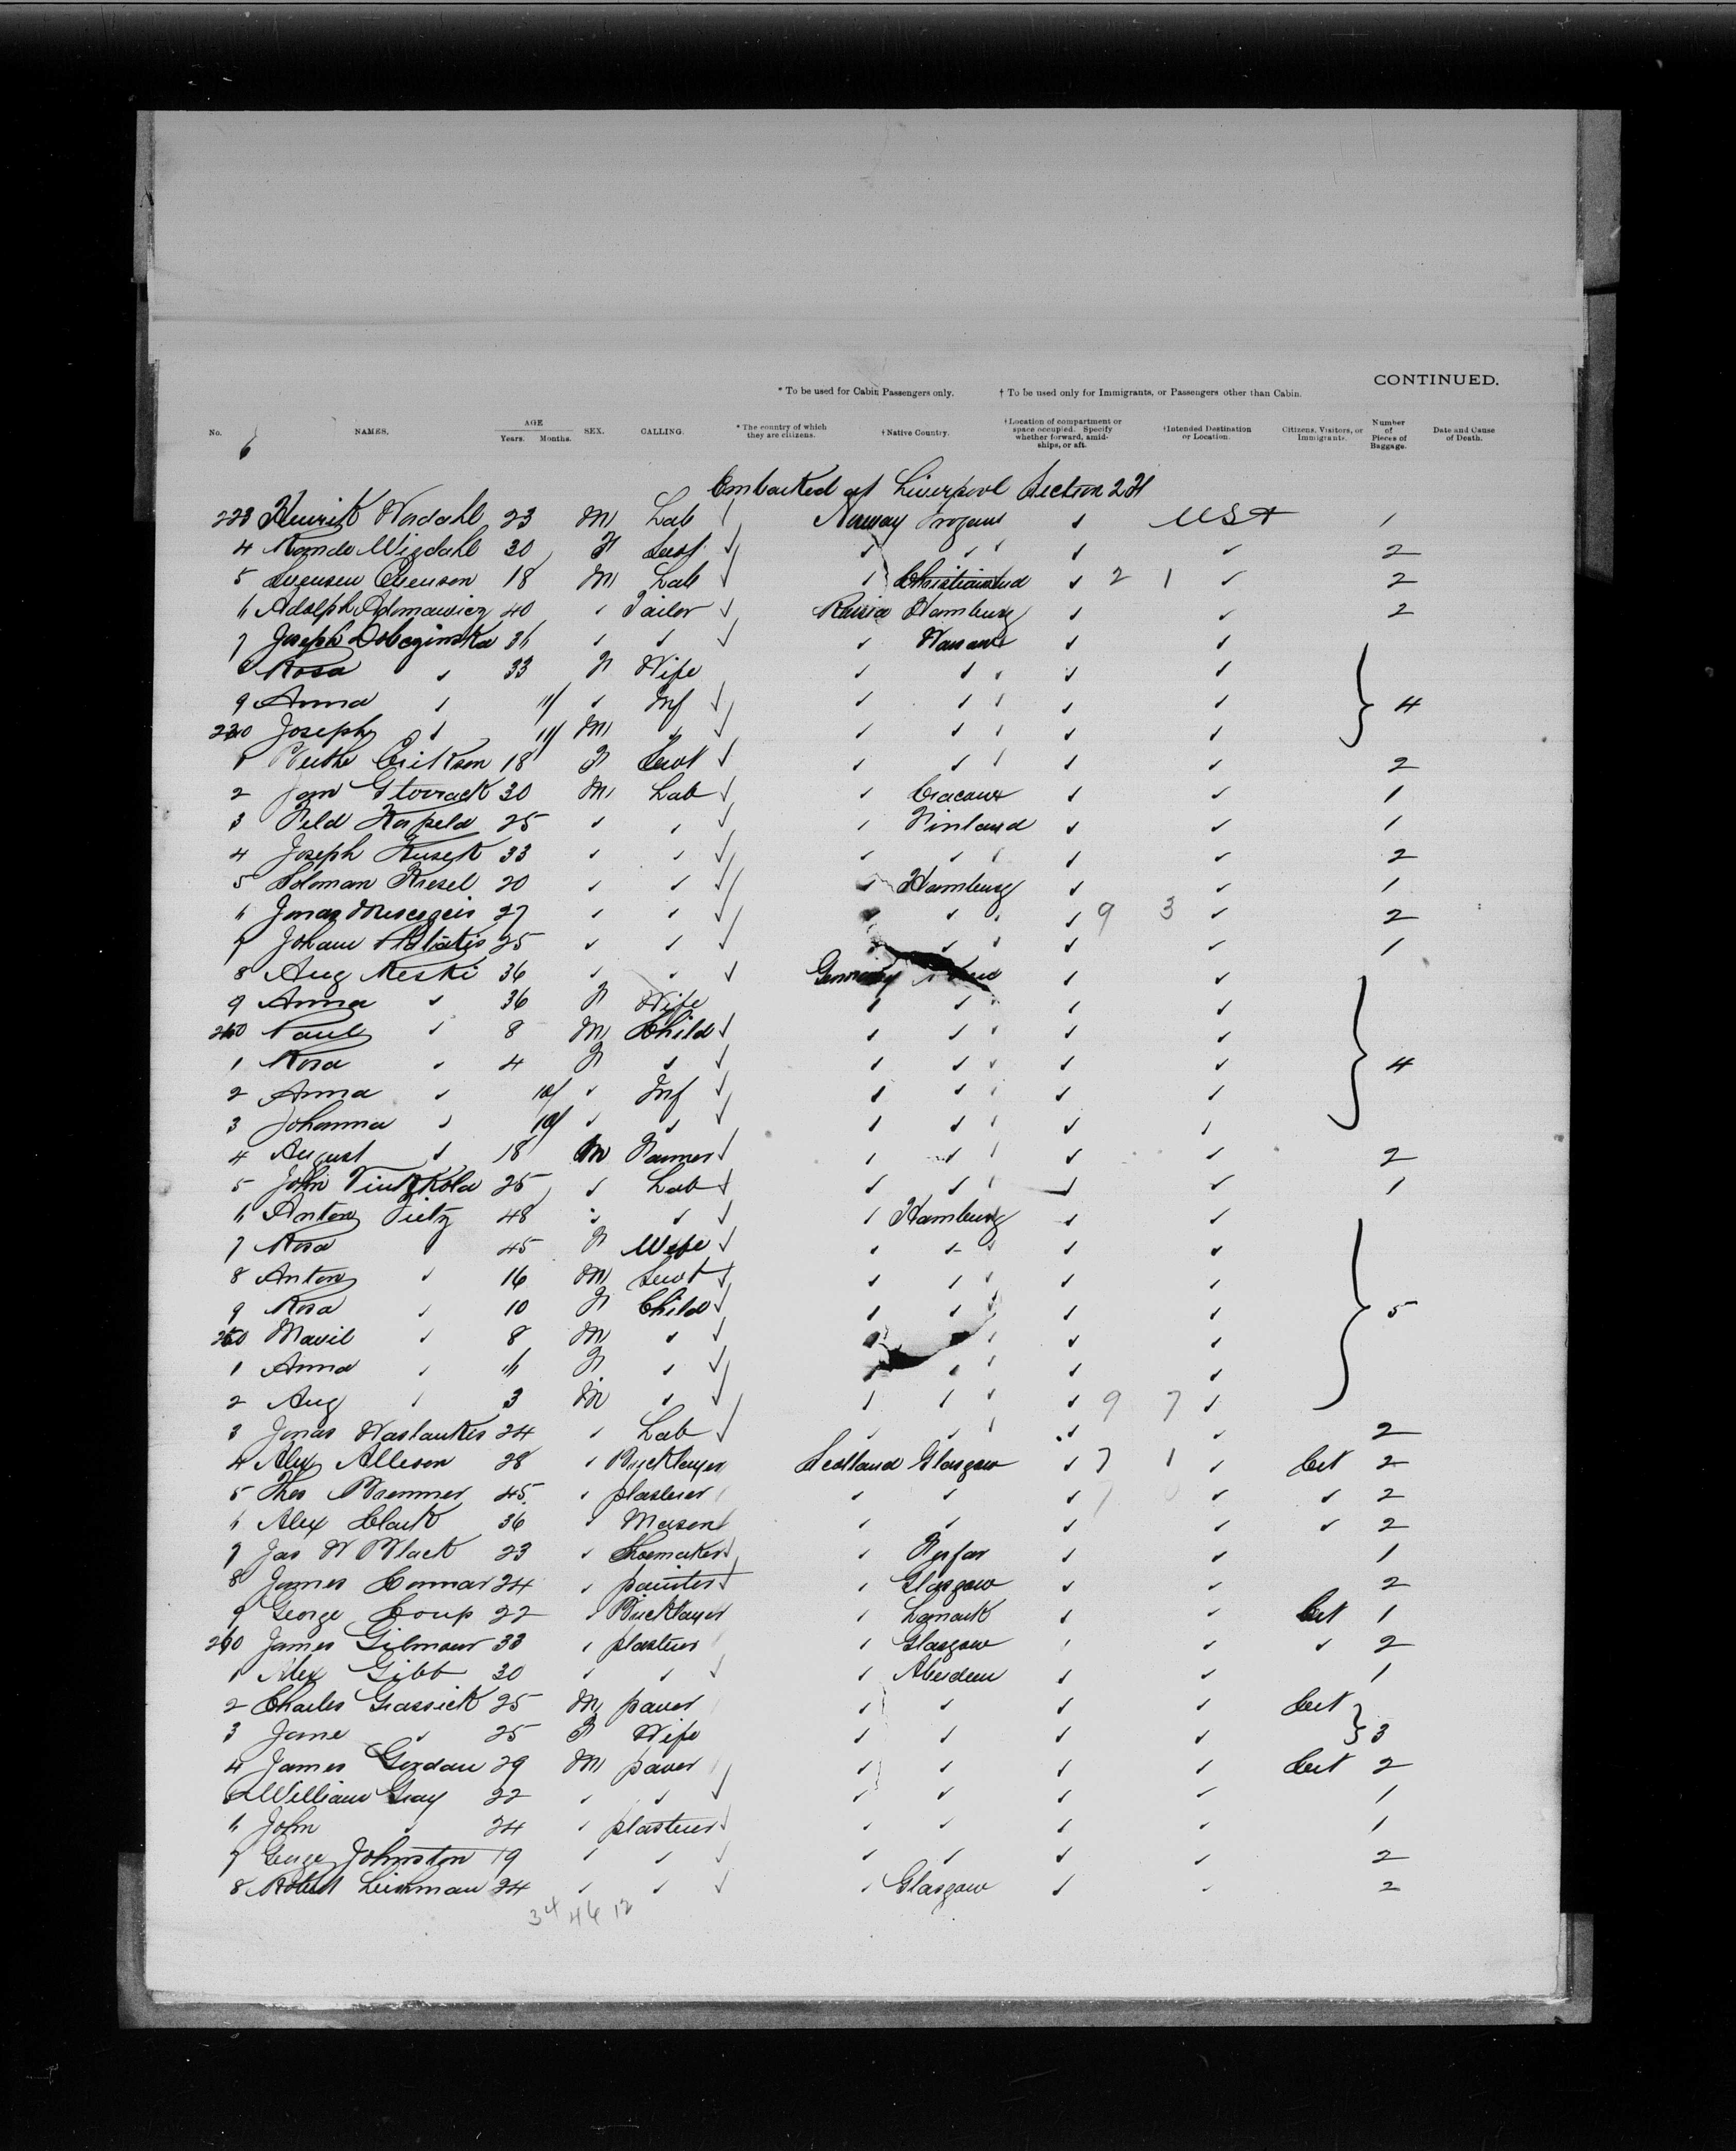 CONTINUED.
* To be used for Cabin Passengers only. † To be used only for Immigrants, or Passengers other than Cabin.
No. NAMES. AGE Years. Months. SEX. CALLING. * The country of which they are citizens. †Native Country. †Location of compartment or space occupied. Specify whether forward, amidships, or aft. †Intended Destination or Location. Citizens, Visitors, or Immigrants. Number of Pieces of Baggage. Date and Cause of Death.
6
Embarked at Liverpool Section 2
223 Wordahl 23 M Lab Norway USA 1
4 Wigdahl 30 F Servt 2
5 18 M Lab 2 1 2
6 Adolph 40 Tailor Russia Hamburg 2
7 Joseph 36 Warsaw
8 Rosa 33 F Wife
9 Anna 11/ Inf 4
230 Joseph 11/ M
1 Erikson 18 F Servt 2
2 30 M Lab Cracow 1
3 25 Finland 1
4 Joseph Kusek 33 2
5 Soloman 20 Hamburg 1
6 Jonas 27 9 3 2
7 25 1
8 Aug Reski 36 Germany
9 Anna 36 F Wife
240 Paul 8 M Child
1 Rosa 4 F 4
2 Anna 10/ Inf
3 Johanna 10/
4 August 18 M Farmer 2
5 John 25 Lab 1
6 Anton Tietz 48 Hamburg
7 Rosa 45 F Wife
8 Anton 16 M Servt
9 Rosa 10 F Child 5
250 8 M
1 Anna 11 F
2 Aug 3 M 9 7
3 Jonas 24 Lab 2
4 Alex Allison 28 Bricklayer Scotland Glasgow 7 1 Cit 2
5 Thos Bremmer 45 plasterer 2
6 Alex Clark 36 Mason 2
7 Jas W Black 23 Shoemaker Forfar 1
8 James Connar 24 painter Glasgow 2
9 George Coup 22 Bricklayer Lanark Cit 1
260 James Gilmour 33 plasterer Glasgow 2
1 Alex Gibb 30 Aberdeen 1
2 Charles Grassick 25 M paver Cit
3 Jane 25 F Wife 3
4 James Gordon 29 M paver Cit 2
5 William Gray 22 1
6 John 24 plasterer 1
7 George Johnston 19 2
8 Robert Leishman 24 Glasgow 2
34 46 12